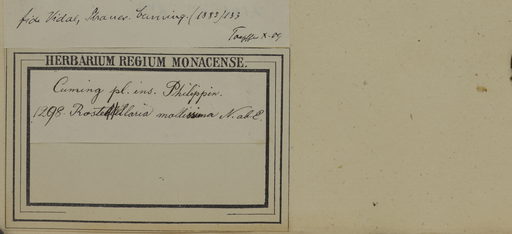 fide Vidal, Phaner. Cuming. (1885) 133
Toepffer X.09
HERBARIUM REGIUM MONACENSE.
Cuming pl. ins. Philippin.
1298. Rostellularia mollissima N. ab E.